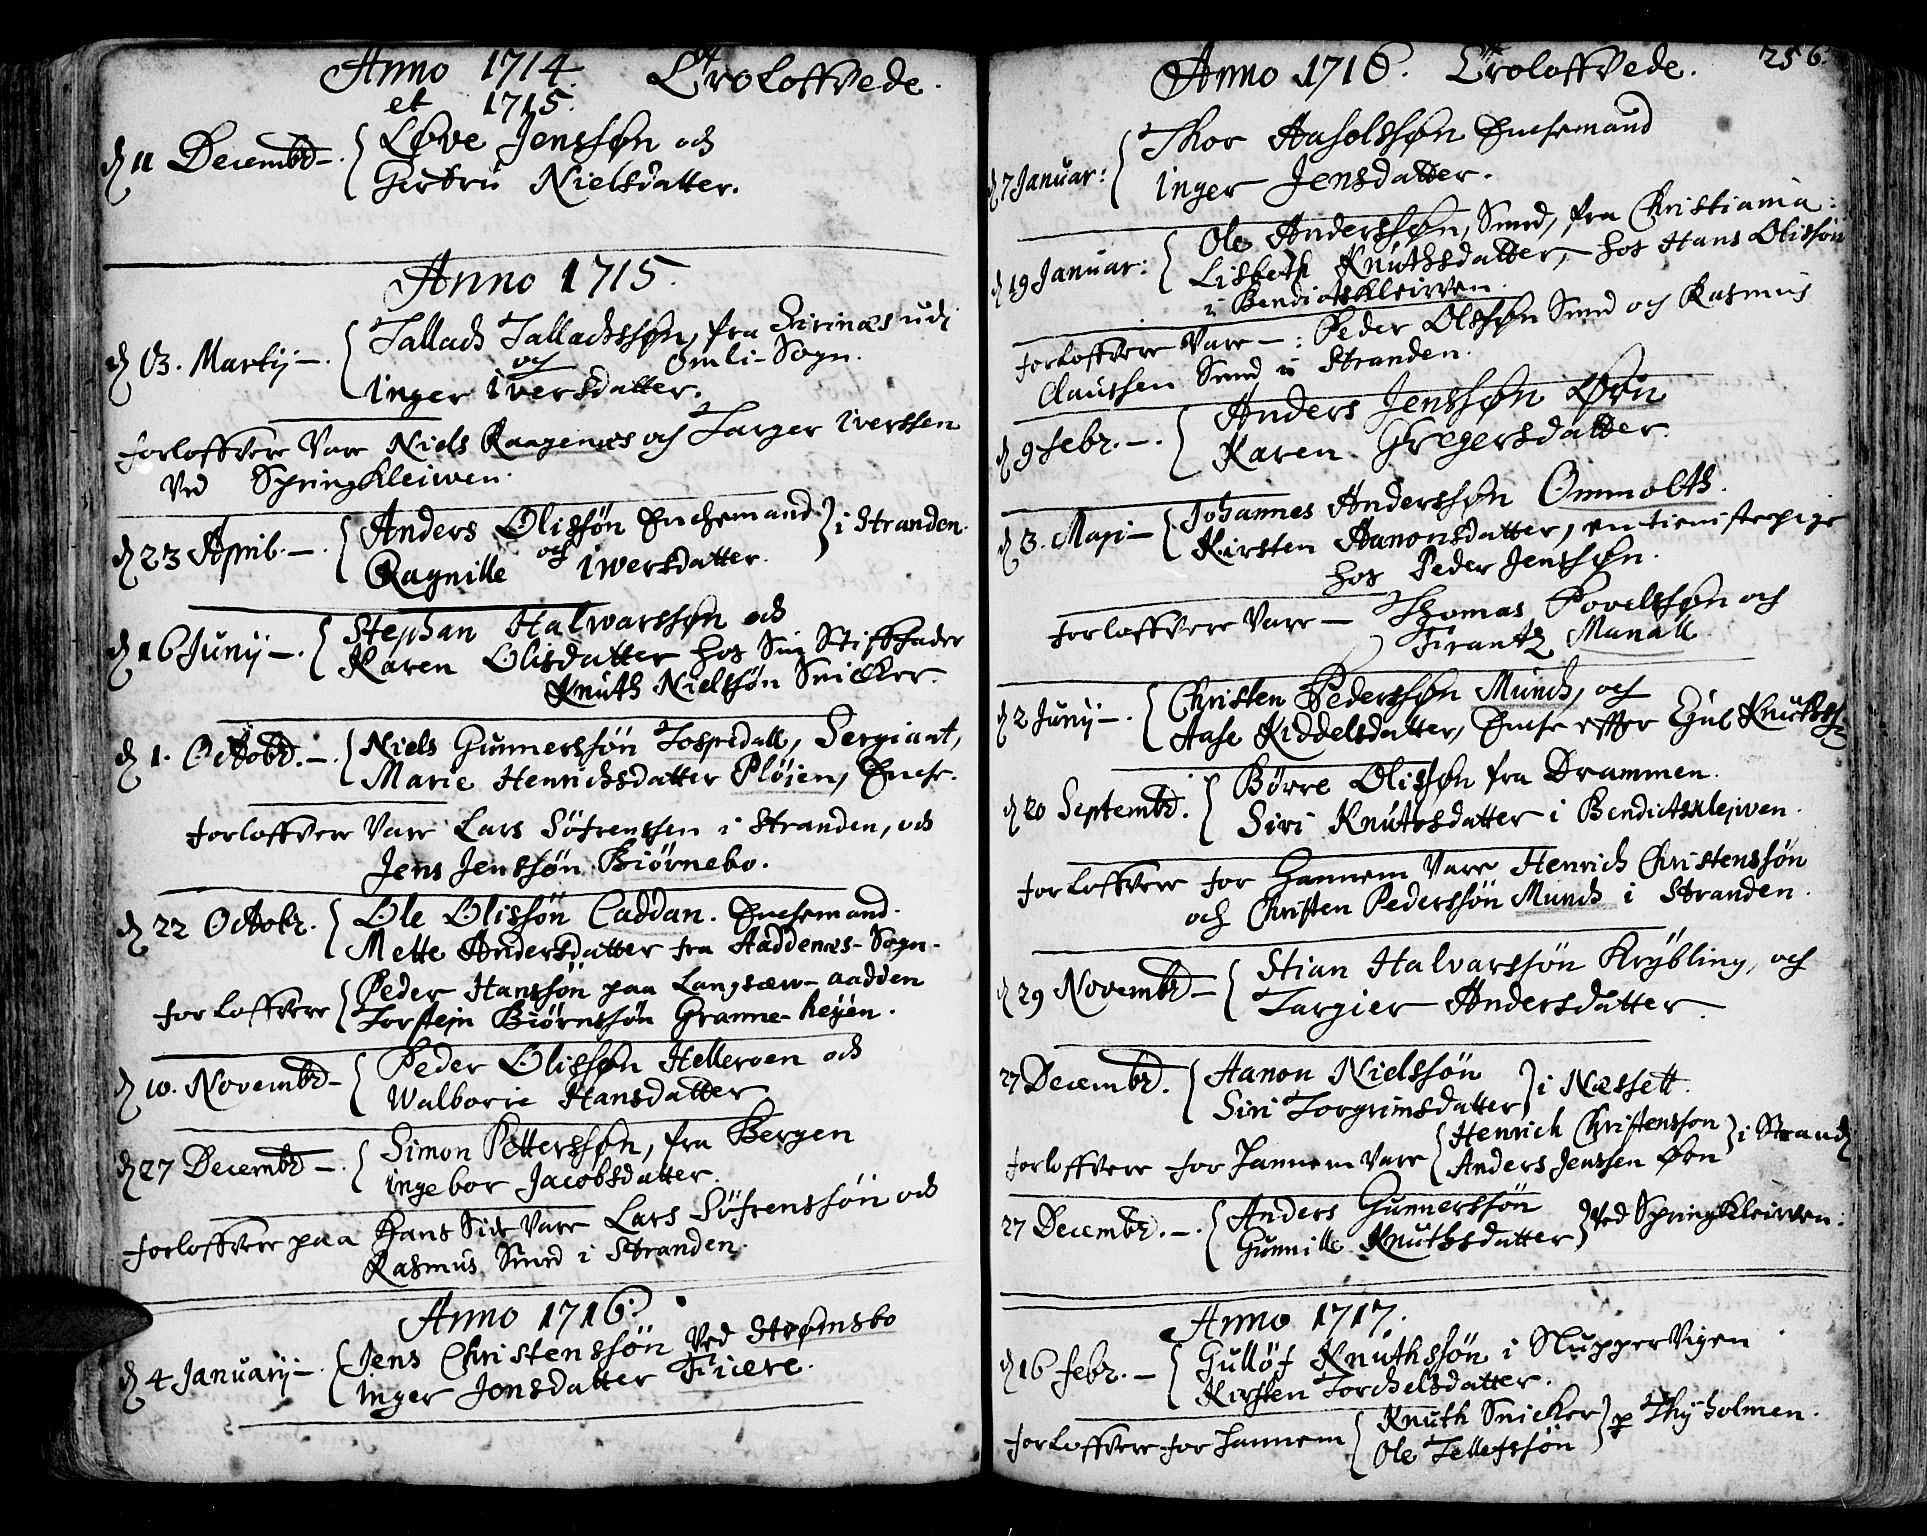 Anno 1714 et 1715. Troloffvede.
d 11 Decembr. Love Jenssøn och
Gertru Nielsdatter.
Anno 1715.
d 13. Martij Tallach Tallachssøn, fra Sirinæs udi
och Omli-Sogn.
Inger Iversdatter.
forloffvere Vare Niels Raagenæs och Targer Iverssen
Ved Springkleiwen.
d 23 April. Anders Olissøn Enchemand
och i Stranden.
Ragnille Iwersdatter.
d 16 Junij Stephan Halwarssøn och
Karen Olisdatter hos Sin Stiffader
Knuth Nielssøn Snicker.
d 1. Octobr. Niels Gunnerssøn Tospedall, Sergiant,
Marie Henrichsdatter Pløien, Encke.
forloffvere Vare Lars Söfrenssen i Stranden, och
Jens Jenssøn Biørnebo.
d 22 Octobr. Ole Olissøn Caddan. Enchemand.
Mette Andersdatter fra Aaddenæs-Sogn.
forloffvere Peder Hanssøn paa Langsæw-aadden
Torstejn Biørnssøn Granne-heÿen.
d 10. Novembr Peder Olissøn Helleroen och
Walborie Hansdatter
d 27 Decembr Simon Petterssøn, fra Bergen
ingebor Jacobsdatter.
forloffvere paa Hans Side Vare Lars Söfrenssøn och
Rasmus Smed i Stranden.
Anno 1716.
d 4 Januarij Jens Christenssøn Ved Strømsbo
Inger Jonsdatter Fiære.
Anno 1716. Troloffvede. 256.
d 7 Januar: Thor Aasolssøn Enchemand
Inger Jensdatter.
d 19 Januar: Ole Anderssøn, Smed, fra Christiania:
Lisbeth Knuthsdatter, hos Hans Olissøn
i Bendictskleiwen.
forloffvere Vare: Peder Olssøn Smed och Rasmus
Claussen Smed i Stranden.
d 9 febr. Anders Jenssøn Ørn
Karen Gregersdatter.
d 3. Maji Johannes Anderssøn Ommolth.
Kirsten Aanonsdatter, en tienistepige
hos Peder Jenssøn.
forloffvere Vare Thomas Povelssøn och
Frantz Manall
d 2 Junij Christen Pederssøn Munch, och
Aase Kiddelsdatter, Encke effter Gul Knuthss:
d 20 Septembr. Børre Olissøn fra Drammen.
Siri Knutesdatter i Bendictsklejwen.
forloffvere for Hannem Vare Henrich Christenssøn
och Christen Pederssøn Munch i Stranden.
d 29 Novembr Stian Halvarssøn Krÿbling, och
Targier Andersdatter
27 Decembr. Aanon Nielssøn
i Næssett.
Siri Torgrimsdatter
forloffvere for hannem Vare Henrich Christensson
i Strand
Anders Jenssen Ørn
27 Decembr. Anders Gunnerssøn
Ved Springkleiwen:
Gunnille Knuthsdatter
Anno 1717.
d 16 febr. Gulløf Knuthssøn i SluppeVigen
Kirsten Torchelsdatter.
forloffvere for hannem Knuth Snicker
p Thÿholmen.
Ole Tellefssøn